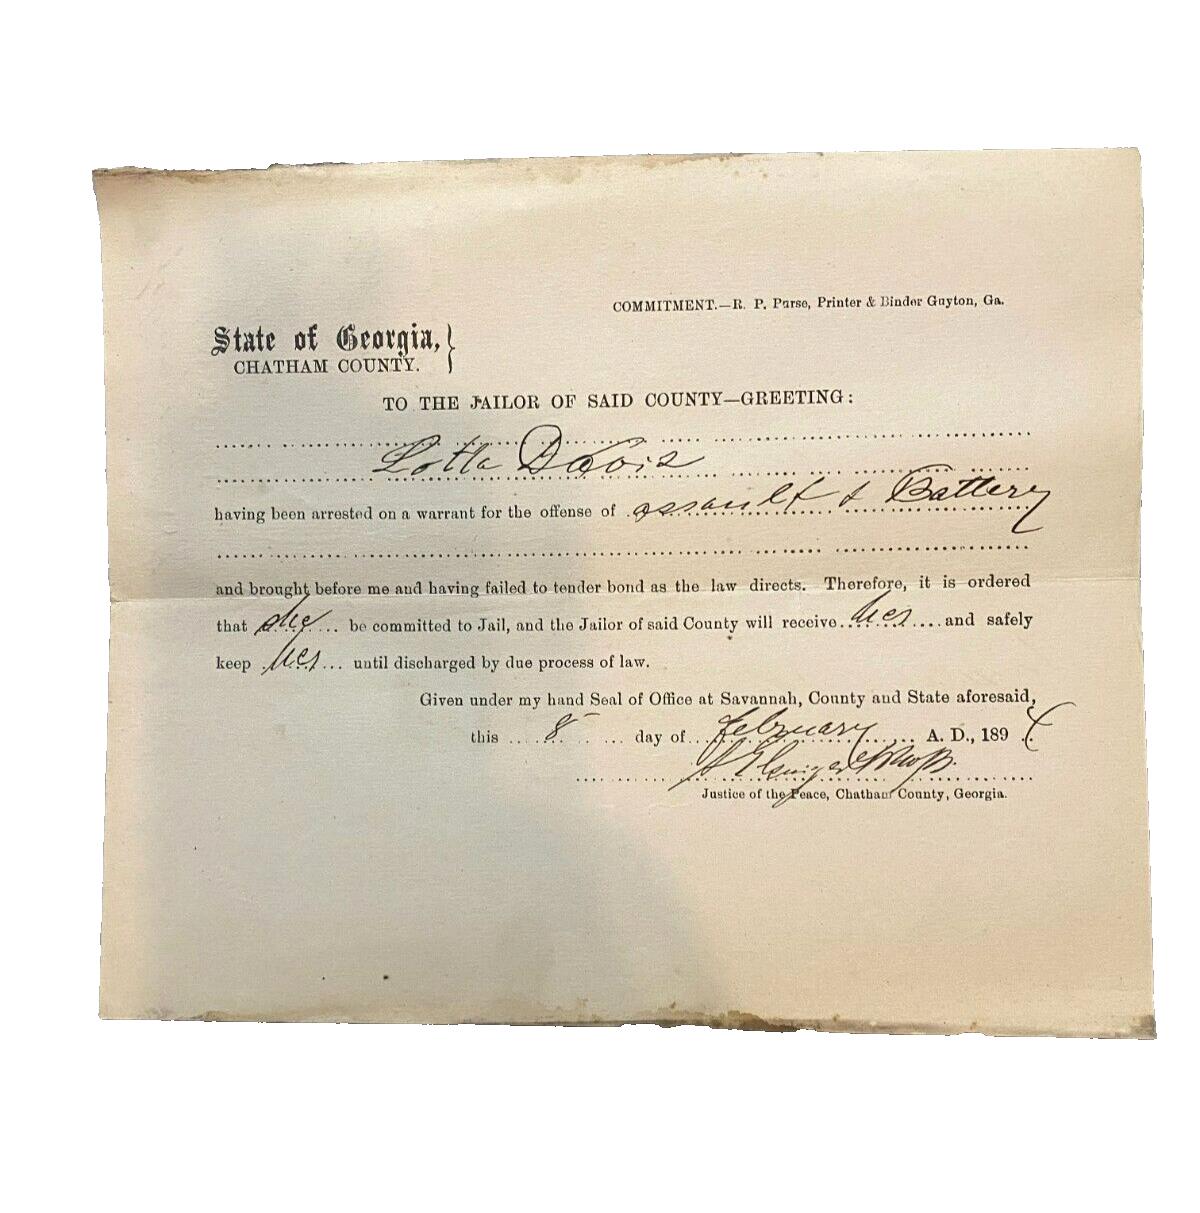 COMMITMENT.—R. P. Purse, Printer & Binder Guyton, Ga.
State of Georgia, }
CHATHAM COUNTY.
TO THE JAILOR OF SAID COUNTY—GREETING:
Lotta Davis
having been arrested on a warrant for the offense of assault & Battery
and brought before me and having failed to tender bond as the law directs. Therefore, it is ordered
that she be committed to Jail, and the Jailor of said County will receive her and safely
keep her until discharged by due process of law.
Given under my hand Seal of Office at Savannah, County and State aforesaid,
this 8 day of February A. D., 189
Justice of the Peace, Chatham County, Georgia.